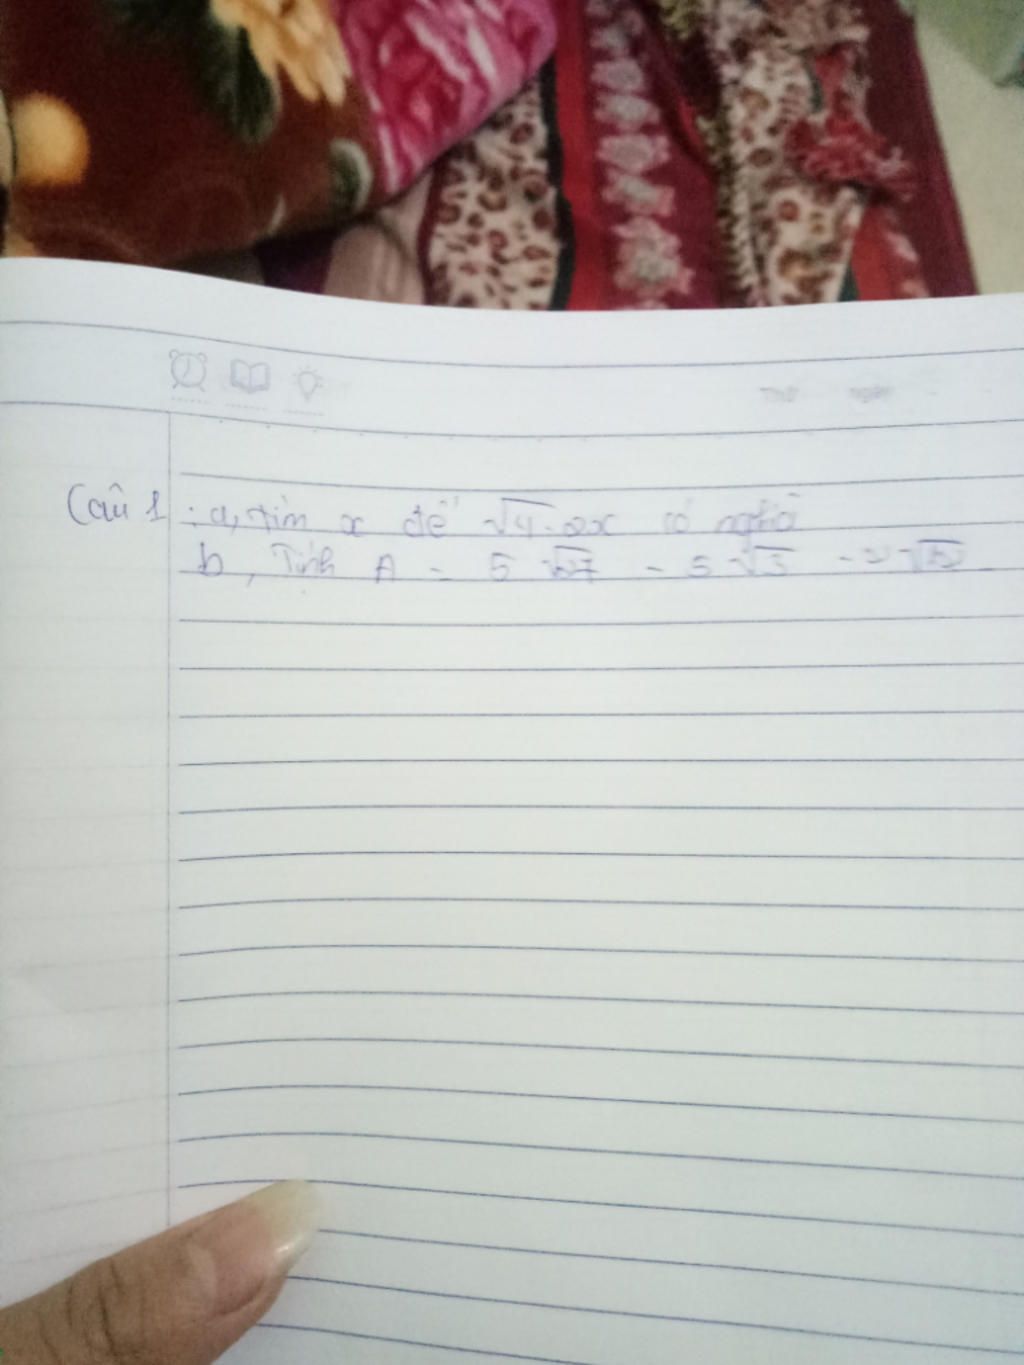 Thứ ngày
Câu 1: a, tìm x để √4-2x có nghĩa
b, Tính A = 5 √27 - 5 √3 -